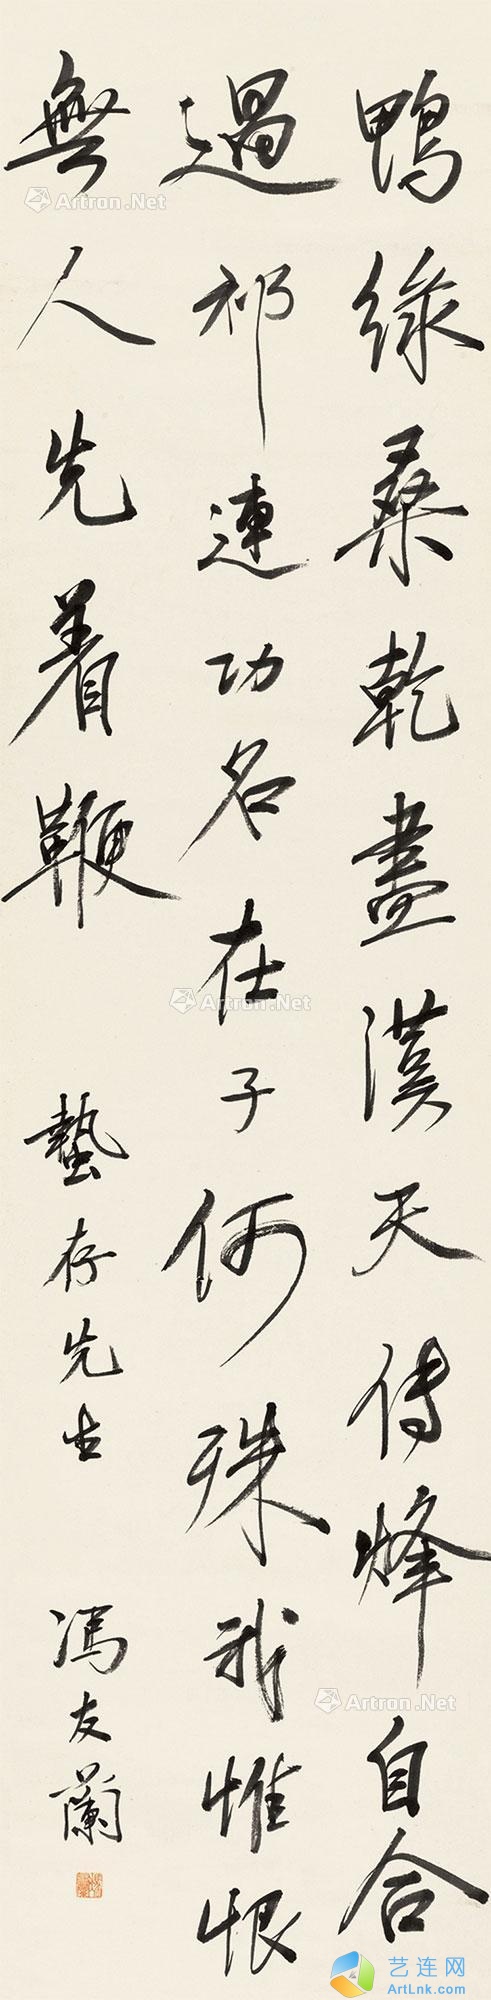 鴨綠桑乾盡漢天傳烽自合
過祁連功名在子何殊我惟恨
無人先着鞭
蟄存先生
馮友蘭
Artron.Net
Artron.Net
Artron.Net
Artron.Net
艺连网
ArtLnk.com